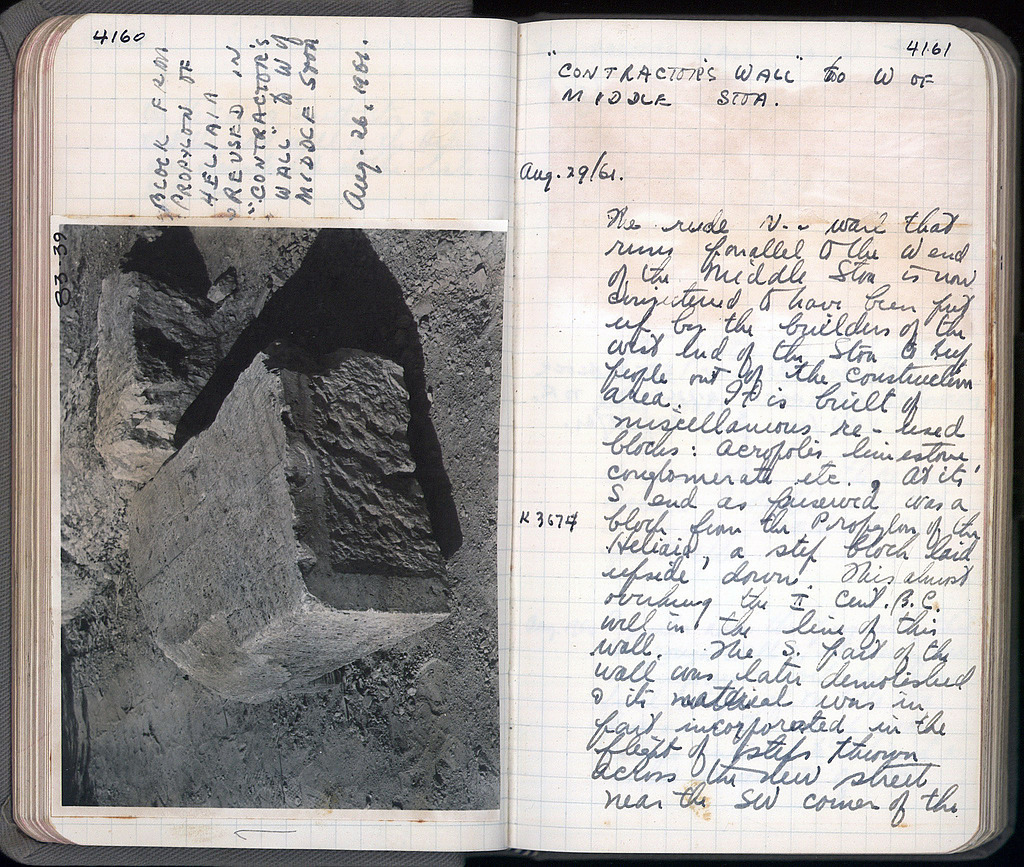 4160
BLOCK FROM
PROPYLON OF
HELIAIA
REUSED IN
"CONTRACTOR'S
WALL" to W of
MIDDLE STOA
Aug. 26, 1961.
83-39
4161
"CONTRACTOR'S WALL" to W OF
MIDDLE STOA.
Aug. 29/61.
The rude wall that
runs parallel to the W end
of the Middle Stoa is now
conjectured to have been put
up by the builders of the
west end of the Stoa to keep
people out of the construction
area. It is built of
miscellaneous re-used
blocks: Acropolis limestone,
conglomerate etc. At its
S end as preserved was a
K 3674
block from the Propylon of the
Heliaia, a step block laid
upside down. This almost
overhung the I Cent. B.C.
well in the line of this
wall. The S. part of the
wall was later demolished
& its material was in
part incorporated in the
flight of steps thrown
across the new street
near the SW corner of the